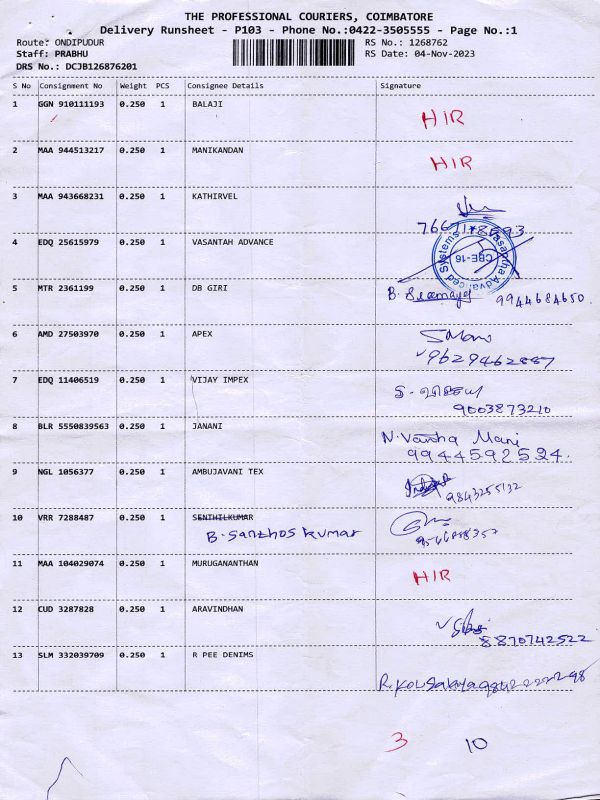 THE PROFESSIONAL COURIERS, COIMBATORE
Delivery Runsheet - P103 - Phone No.:0422-3505555 - Page No.:1
Route: ONDIPUDUR RS No.: 1268762
Staff: PRABHU RS Date: 04-Nov-2023
DRS No.: DCJB126876201
S No Consignment No Weight PCS Consignee Details Signature
1 GGN 910111193 0.250 1 BALAJI HIR
2 MAA 944513217 0.250 1 MANIKANDAN HIR
3 MAA 943668231 0.250 1 KATHIRVEL
4 EDQ 25615979 0.250 1 VASANTAH ADVANCE
Vasantha Advanced Systems CBE-16
5 MTR 2361199 0.250 1 DB GIRI B. 9944684650.
6 AMD 27503970 0.250 1 APEX S Mani
9629462887
7 EDQ 11406519 0.250 1 VIJAY IMPEX
9003873210
8 BLR 5550839563 0.250 1 JANANI N. Varsha Mani
9944592524.
9 NGL 1056377 0.250 1 AMBUJAVANI TEX 9843255132
10 VRR 7288487 0.250 1 SENTHILKUMAR
B. Santhos kumar
11 MAA 104029074 0.250 1 MURUGANANTHAN HIR
12 CUD 3287828 0.250 1 ARAVINDHAN
8870742522
13 SLM 332039709 0.250 1 R PEE DENIMS
R. Kousalya
3 10